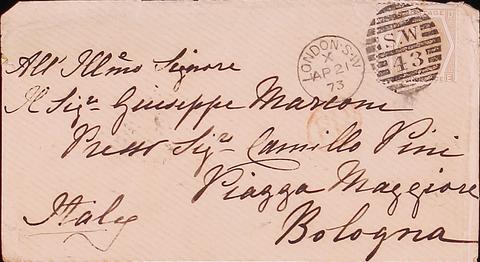 LONDON·S·W
X
AP 21
73
S.W
43
All' Illmo Signore
Il Sigr. Giuseppe Marconi
Presso Sigr. Camillo Pini
Piazza Maggiore
Italy
Bologna